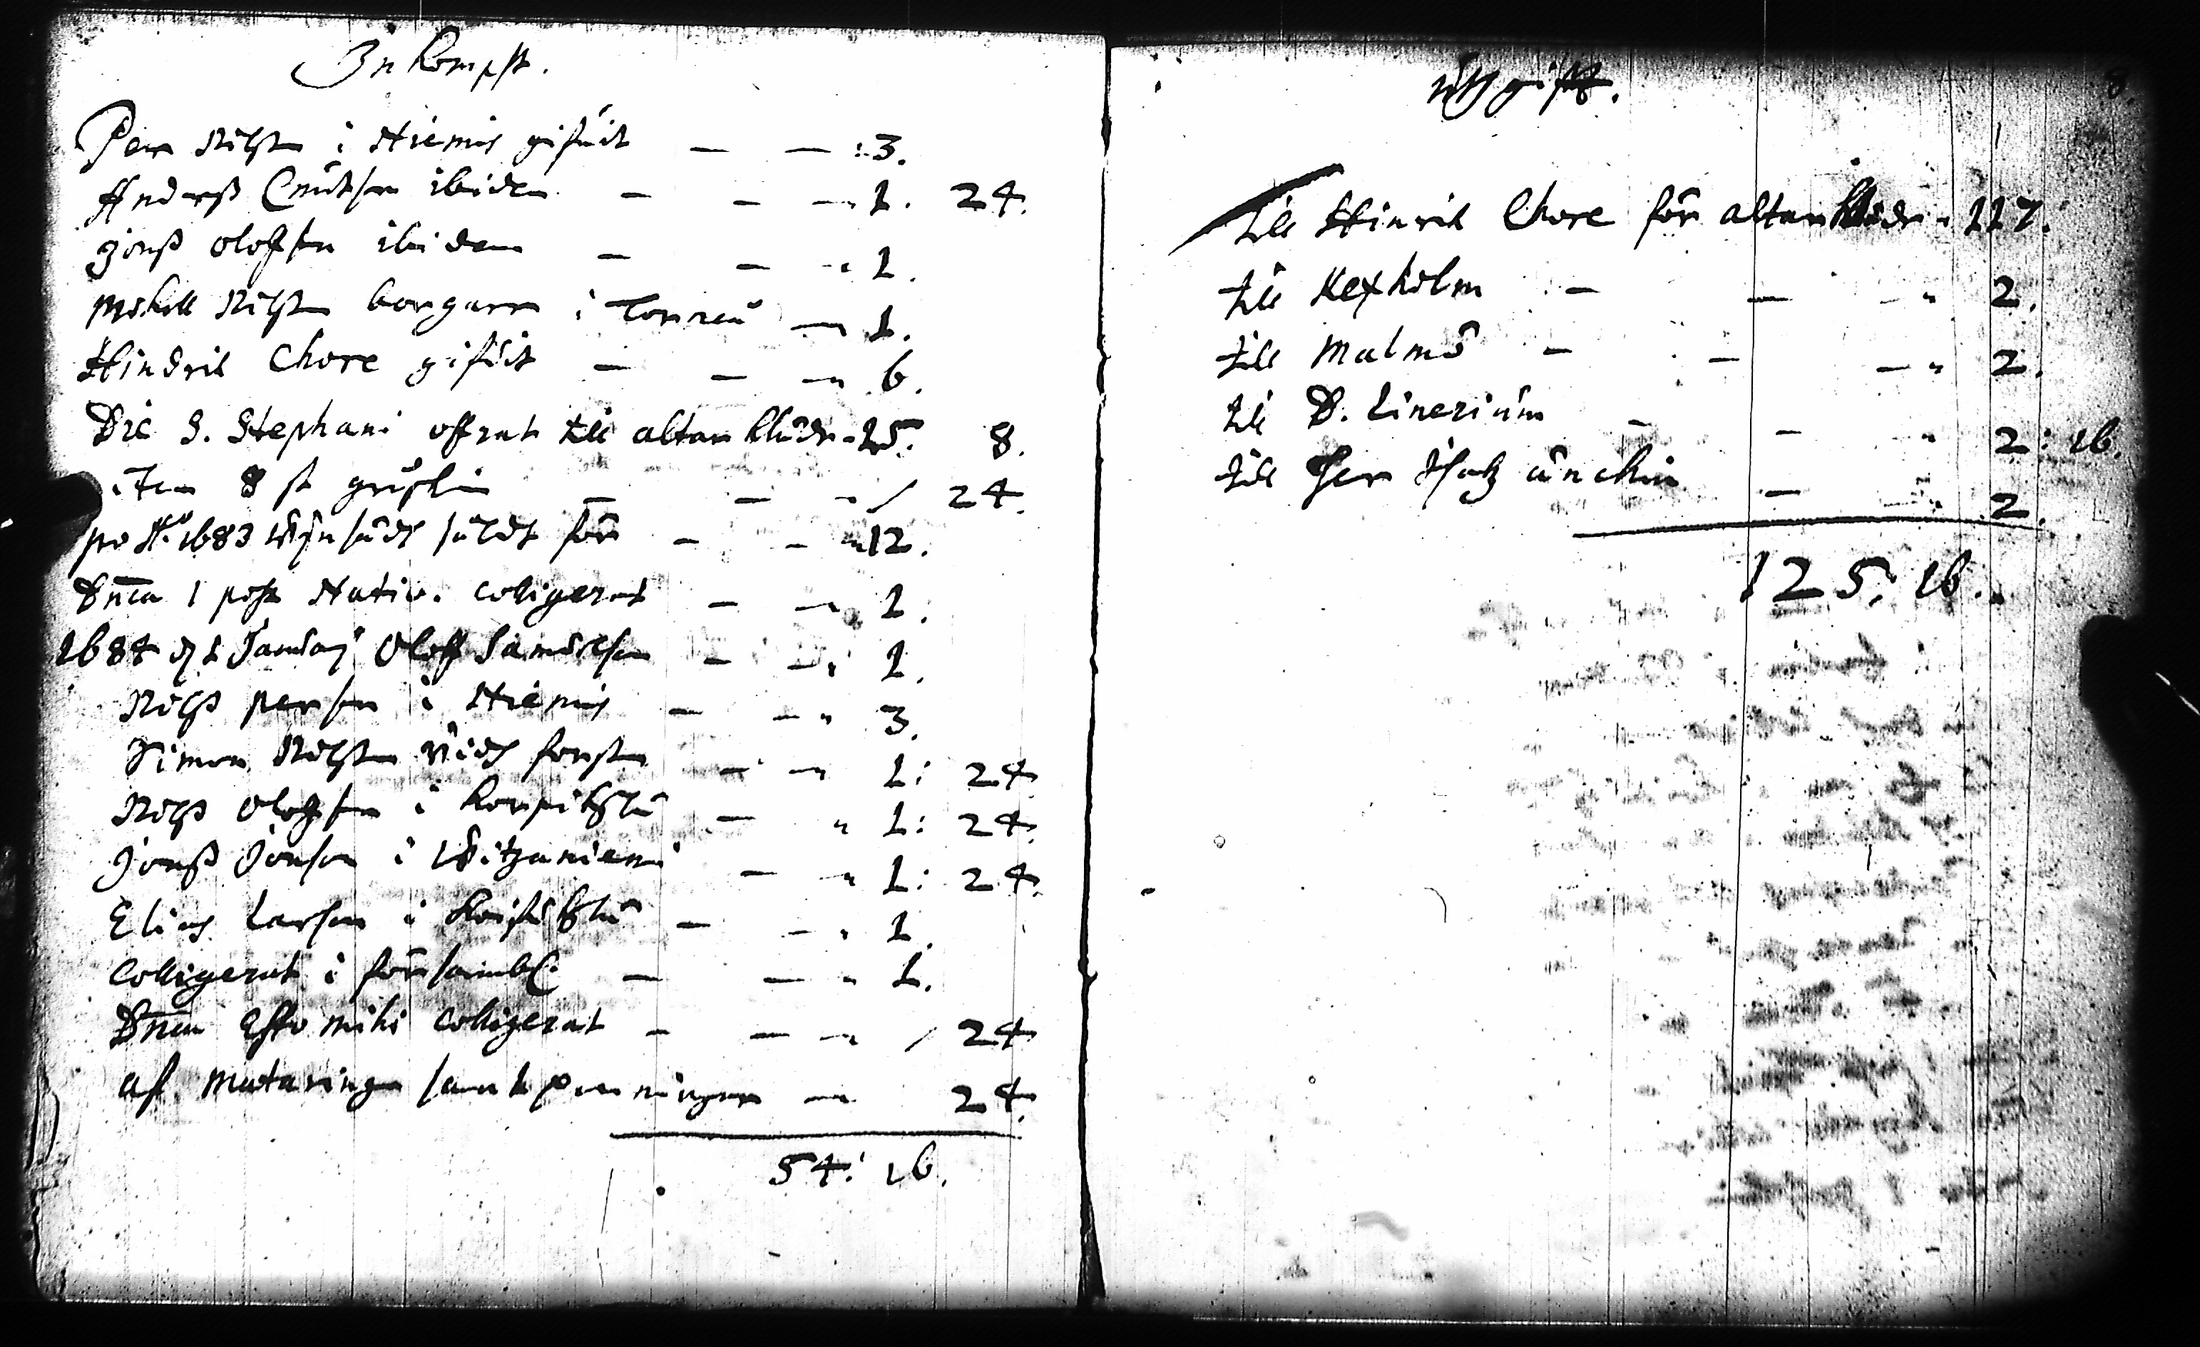 Inkompst.
Per Nilsson i Hiemis gifwit — — 3.
Anderß Cnutson ibidem — — 1. 24.
Jonß Olofson ibidem — — 1.
Mikell Nilsson borgare i Torneå — 1.
Hindrik Chore gifwit — — 6.
Die S. Stephani offrat till altar klädr 15. 8.
Item 8 st — — / 24.
pro Aº 1683 såldt för — — 12.
Dnica 1 post Nativ. coligerat — — 1.
1684 d 1 January Oloff Samuelson — — 1.
Nilß Person i Hiemis — — 3.
Simon Nilsson widh forsen — — 1: 24
Nilß Olofson i Korpikylä — 1: 24.
Jonß Jonson i Witzaniemi — 1: 24.
Elias Larson i — — 1.
Coligerat i försambl: — — 1.
Dnica Esto mihi colligerat — — / 24
af Mataringe samt penningar — 24.
54: 16.
uthgift.
8.
till Hinrik Chore för altar klädr 117.
till Kexholm — — 2.
till Malmö — — 2.
till D. Linerium — — 2: 16.
till Her — 2.
125: 16.